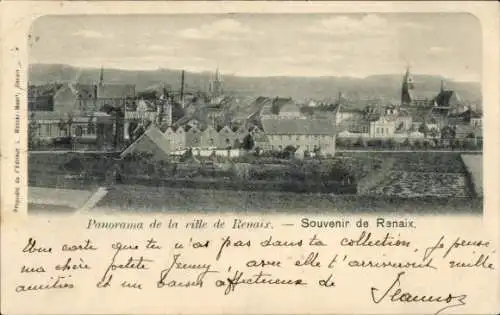 Panorama de la ville de Renaix. — Souvenir de Renaix.
Une carte que tu n'as pas dans ta collection, je pense,
ma chère petite Jenny, avec elle t'arriveront mille
amitiés et un baiser affectueux de